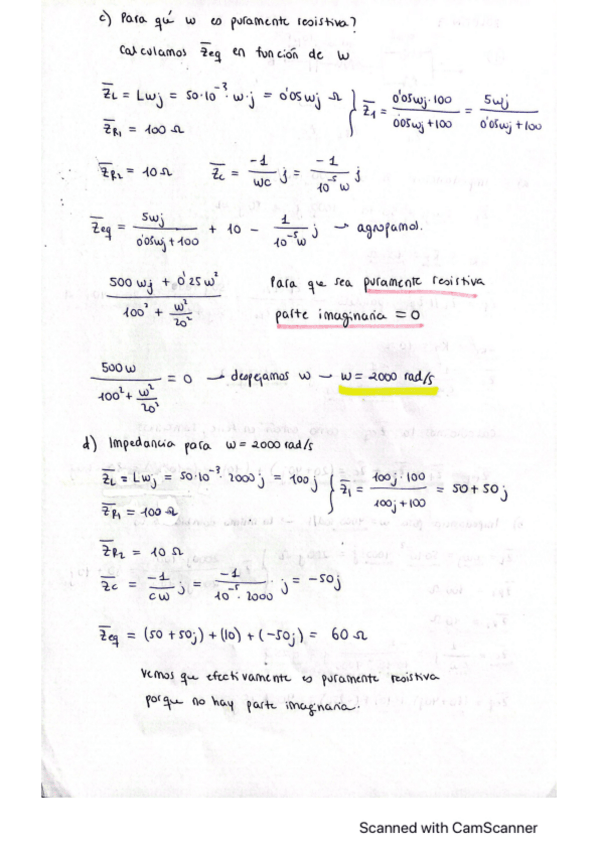 c) Para qué w es puramente resistiva?
Calculamos Z̅eq en función de w
Z̅L = Lwj = 50·10⁻³·w·j = 0'05wj Ω
Z̅R1 = 100 Ω
Z̅1 = 0'05wj·100 / 005wj+100 = 5wj / 0'05wj+100
Z̅R2 = 10 Ω Z̅c = -1/wc j = -1/10⁻⁵w j
Z̅eq = 5wj / 0'05wj+100 + 10 - 1/10⁻⁵w j → agrupamos.
500wj + 0'25w² / 100² + w²/20² Para que sea puramente resistiva
parte imaginaria = 0
500w / 100² + w²/20² = 0 → despejamos w → w = 2000 rad/s
d) Impedancia para w = 2000 rad/s
Z̅L = Lwj = 50·10⁻³·2000j = 100j
Z̅R1 = 100 Ω
Z̅1 = 100j·100 / 100j+100 = 50 + 50j
Z̅R2 = 10 Ω
Z̅c = -1/cw j = -1/10⁻⁵·2000 j = -50j
Z̅eq = (50+50j) + (10) + (-50j) = 60 Ω
Vemos que efectivamente es puramente resistiva
porque no hay parte imaginaria.
Scanned with CamScanner